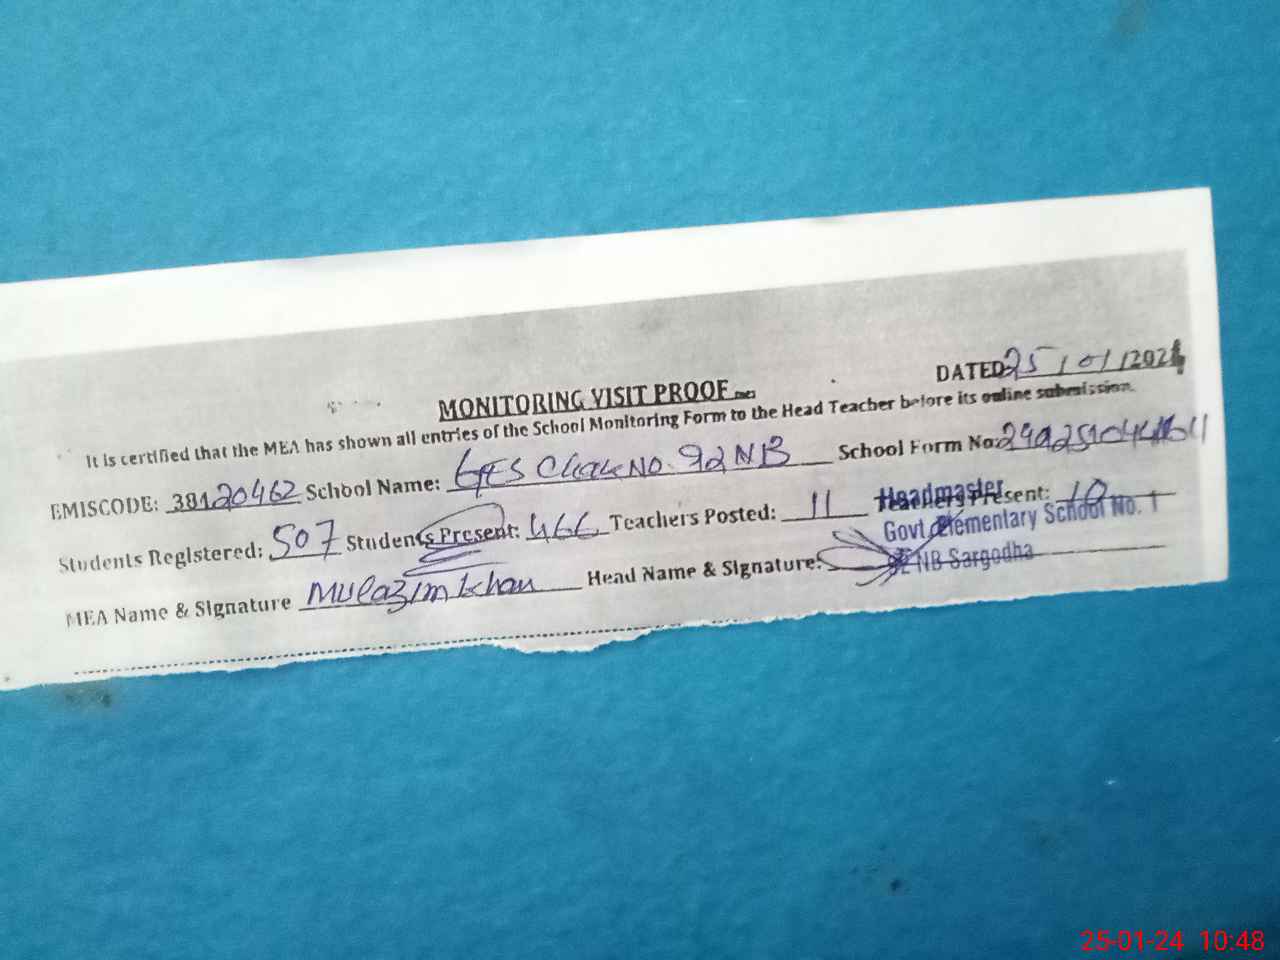 DATED: 25/01/2024
MONITORING VISIT PROOF
It is certified that the MEA has shown all entries of the School Monitoring Form to the Head Teacher before its online submission.
EMISCODE: 38120462 School Name: GES Chak No. 92 NB School Form No:
Students Registered: 507 Students Present: 466 Teachers Posted: 11 Teachers Present: 10
MEA Name & Signature Mulazim Khan Head Name & Signature:
Headmaster
Govt. Elementary School No. 1
NB Sargodha
25-01-24 10:48